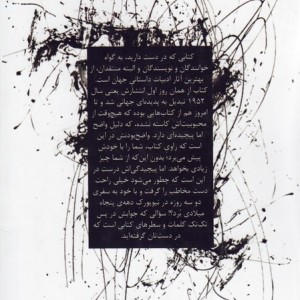 کتابی که در دست دارید، به گواه
خوانندگان و نویسندگان و البته منتقدان، از
بهترین آثار ادبیات داستانی جهان است.
کتاب از همان روز اول انتشارش یعنی سال
۱۹۵۲ تبدیل به پدیده‌ای جهانی شد و تا
امروز هم از کتاب‌هایی بوده که هیچ‌وقت از
محبوبیت‌اش کاسته نشده، که دلیل واضح
اما پیچیده‌ای دارد. واضح‌بودنش در این
است که راوی کتاب، شما را با خودش
پیش می‌برد؛ بدون این‌که از شما چیز
زیادی بخواهد. اما پیچیدگی‌اش درست در
این است که چطور می‌شود خیلی راحت
دست مخاطب را گرفت و با خود به سفری
دو سه روزه در نیویورک دهه‌ی پنجاه
میلادی بُرد؟! سؤالی که جوابش در پس
تک‌تک کلمات و سطرهای کتابی است که
در دست‌تان گرفته‌اید.